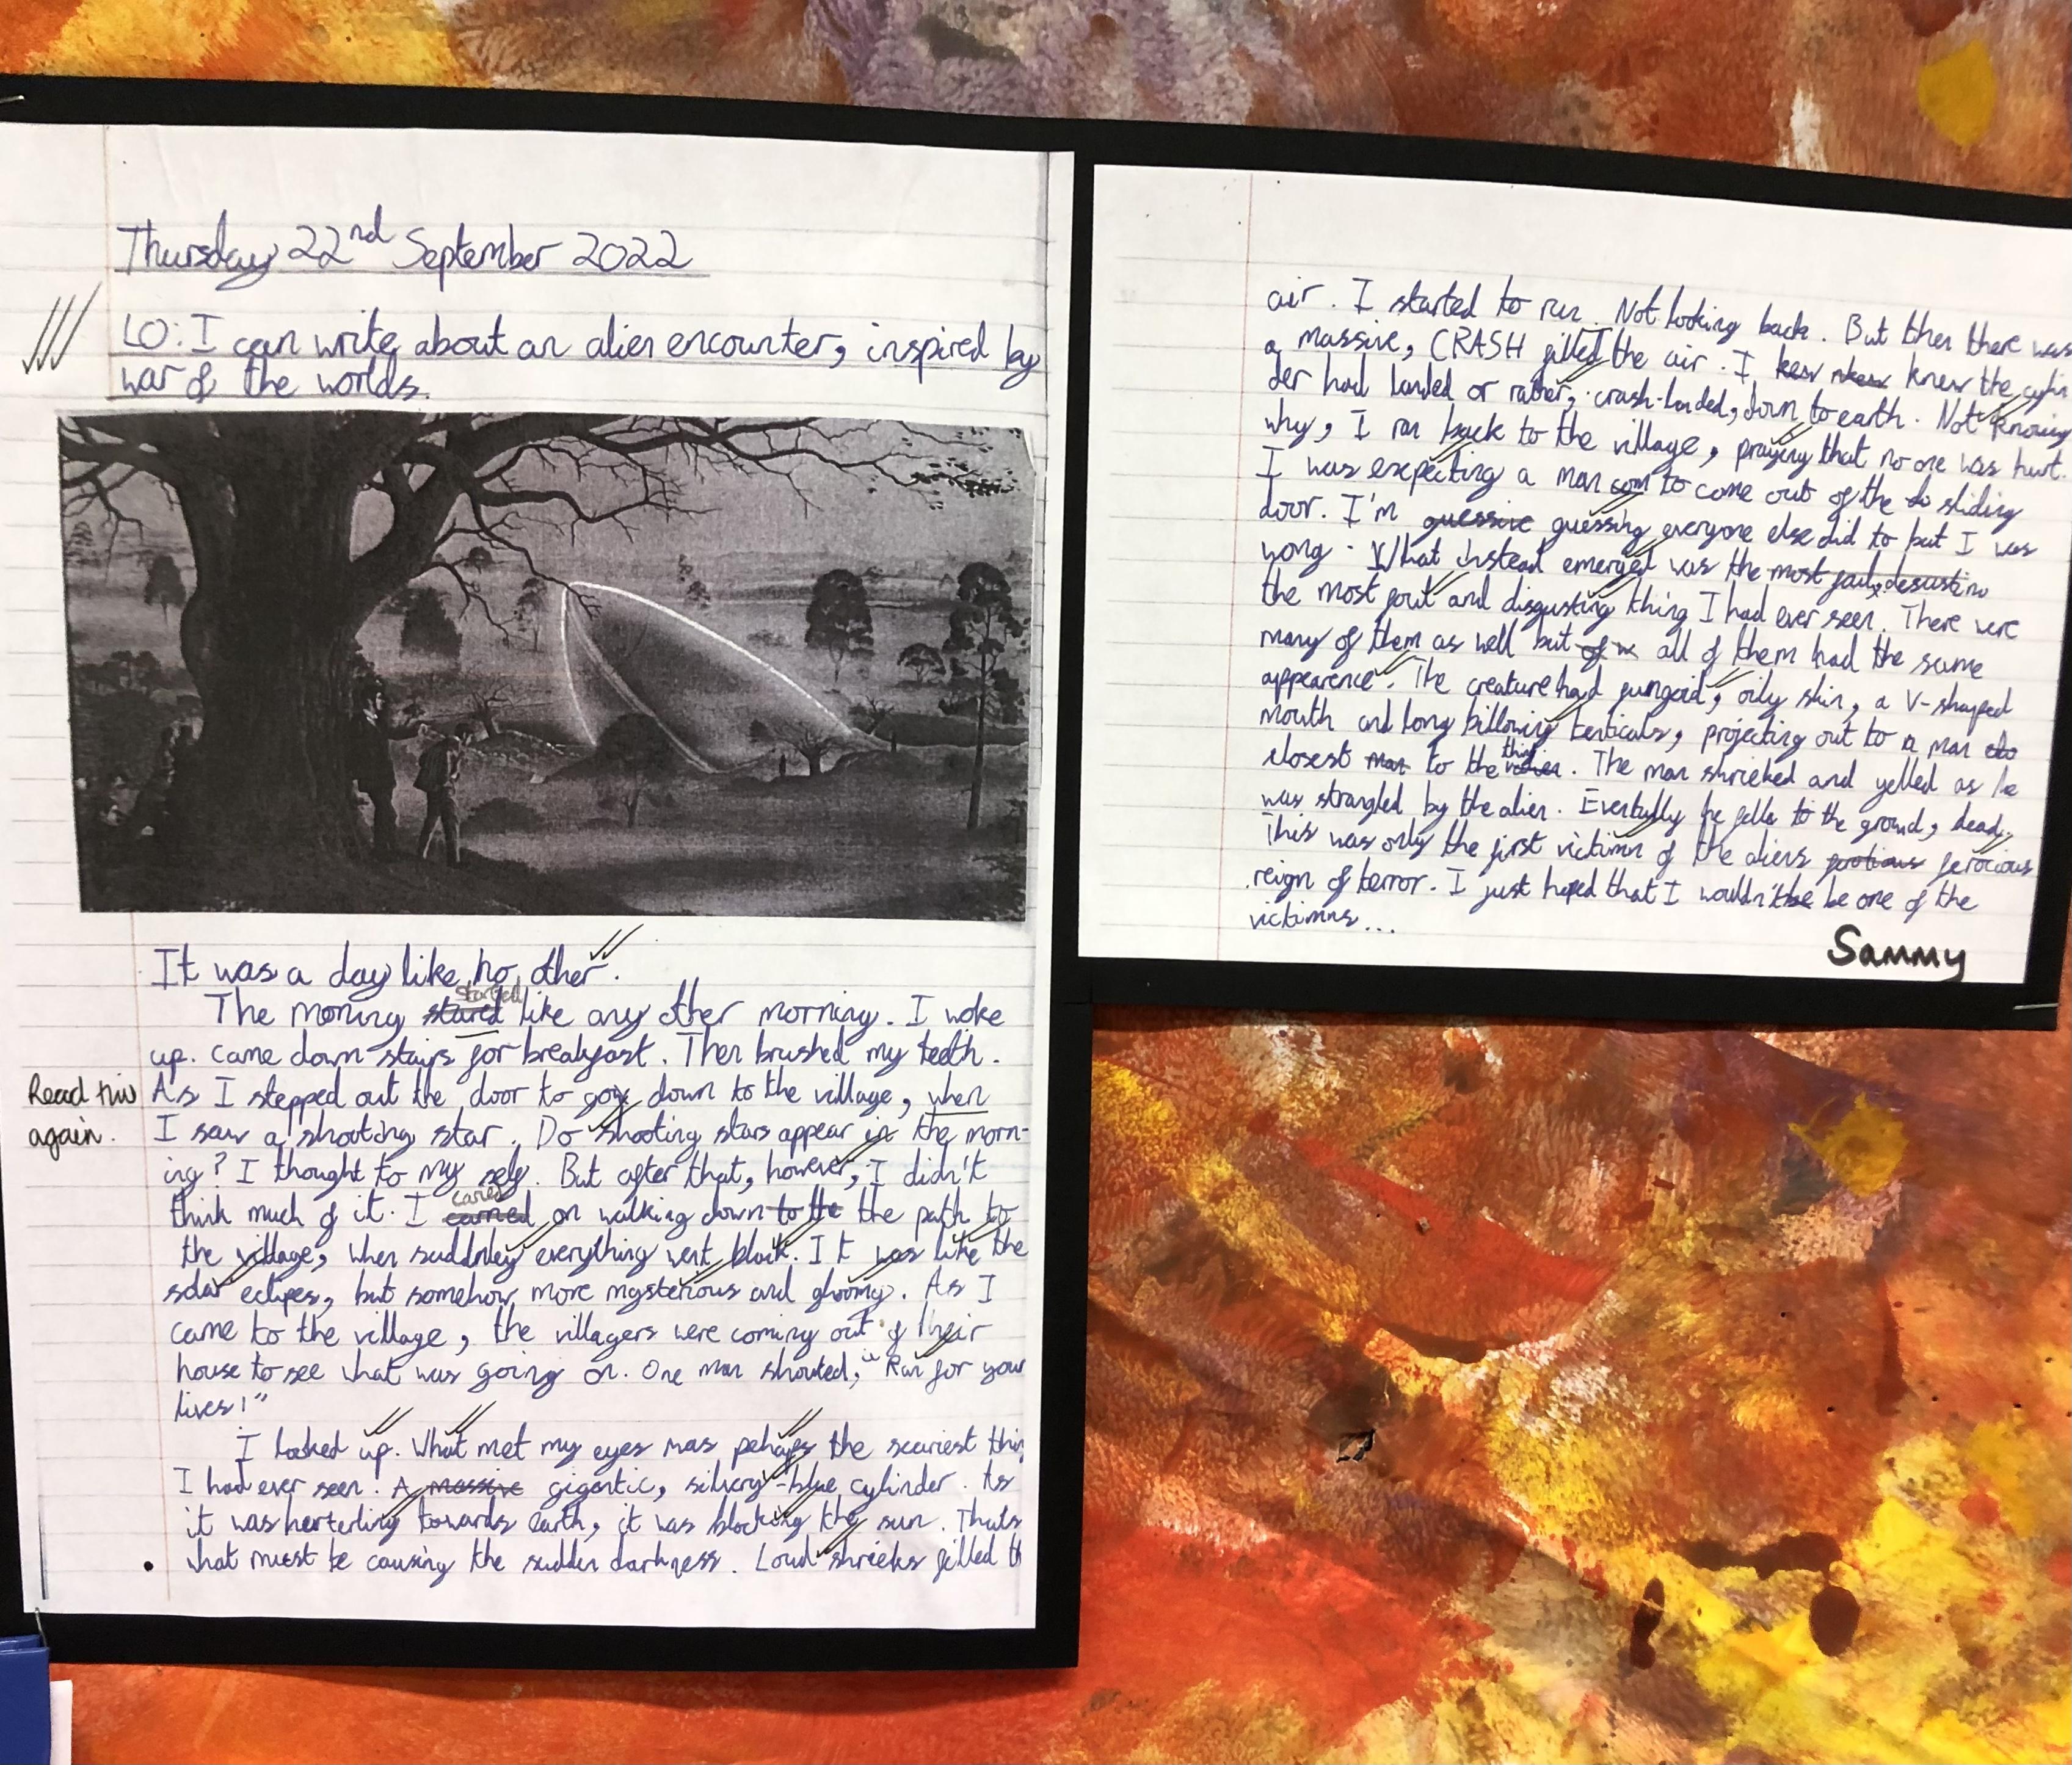 Thursday 22nd September 2022
LO: I can write about an alien encounter, inspired by
war of the worlds.
It was a day like no other.
The morning started like any other morning. I woke
up. came down stairs for breakfast. Then brushed my teeth.
Read this
again.
As I stepped out the door to go down to the village, when
I saw a shooting star. Do shooting stars appear in the morn-
ing? I thought to my self. But after that, however, I didn't
think much of it. I caried on walking down to the the path to
the village, when suddnley everything went black. It was like the
solar eclipes, but somehow more mysterious and gloomy. As I
came to the village, the villagers were coming out of their
house to see what was going on. One man shouted, "Run for your
lives!"
I looked up. What met my eyes was pehaps the scariest thin
I had ever seen. A massive gigantic, silvery-blue cylinder. As
it was herterling towards earth, it was blocking the sun. Thats
what must be causing the sudden darkness. Loud shrieks filled th
air. I started to run. Not looking back. But then there was
a massive, CRASH filled the air. I knew the cylin
der had landed or rather, crash-landed, down to earth. Not knowing
why, I ran back to the village, praying that no one was hurt.
I was exepecting a man com to come out of the do sliding
door. I'm guessing everyone else did to but I was
wong. What instead emerged was the most
the most foul and disgusting thing I had ever seen. There were
many of them as well but of all of them had the same
appearence. The creature had fungoid, oily skin, a V-shaped
mouth and long billowing tenticals, projecting out to a man clo
closest man to the thing. The man shrieked and yelled as he
was strangled by the alien. Eventually he fell to the ground, dead.
This was only the first victimn of the aliens ferocious
reign of terror. I just hoped that I wouldn't be one of the
victimns...
Sammy